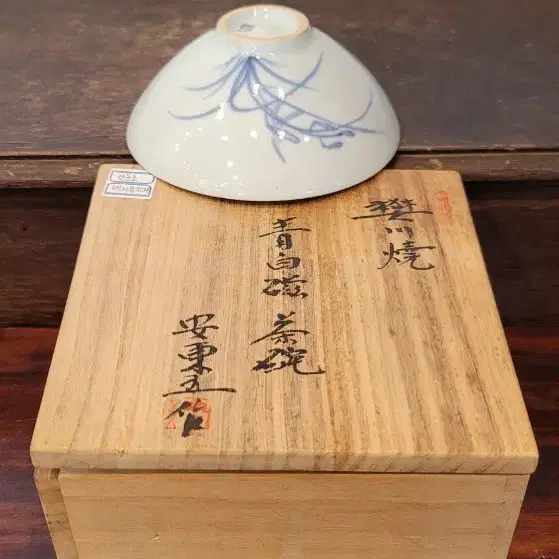 樊川燒
青白磁 茶碗
安東五 作
안동오